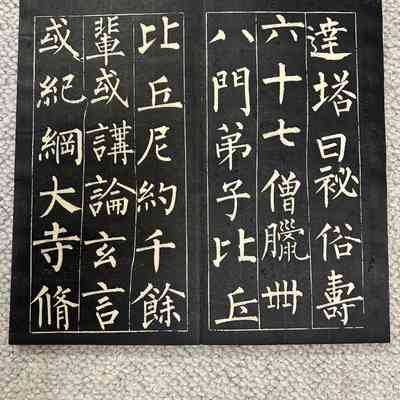 達塔曰祕俗壽
六十七僧臘卌
八門弟子比丘
比丘尼約千餘
輩或講論玄言
或紀綱大寺脩